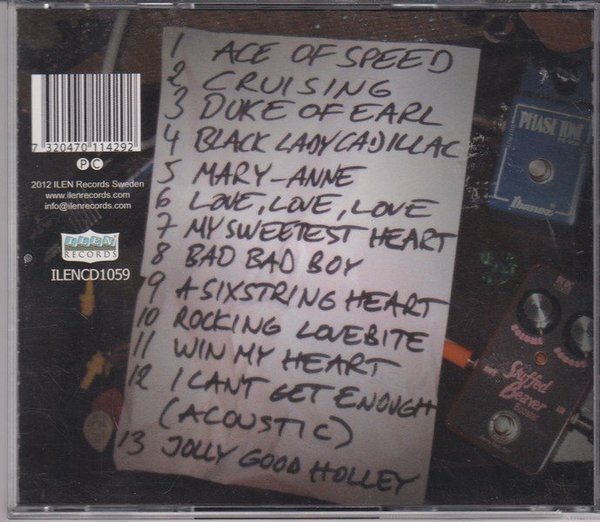 1 ACE OF SPEED
2 CRUISING
3 DUKE OF EARL
4 BLACK LADY CADILLAC
5 MARY-ANNE
6 LOVE, LOVE, LOVE
7 MY SWEETEST HEART
8 BAD BAD BOY
9 A SIXSTRING HEART
10 ROCKING LOVEBITE
11 WIN MY HEART
12 I CANT GET ENOUGH
(ACOUSTIC)
13 JOLLY GOOD HOLLEY
7 320470 114292
P C
2012 ILEN Records Sweden
www.ilenrecords.com
info@ilenrecords.com
ILEN
RECORDS
ILENCD1059
PHASE TONE
Ibanez
Stuffed
Beaver